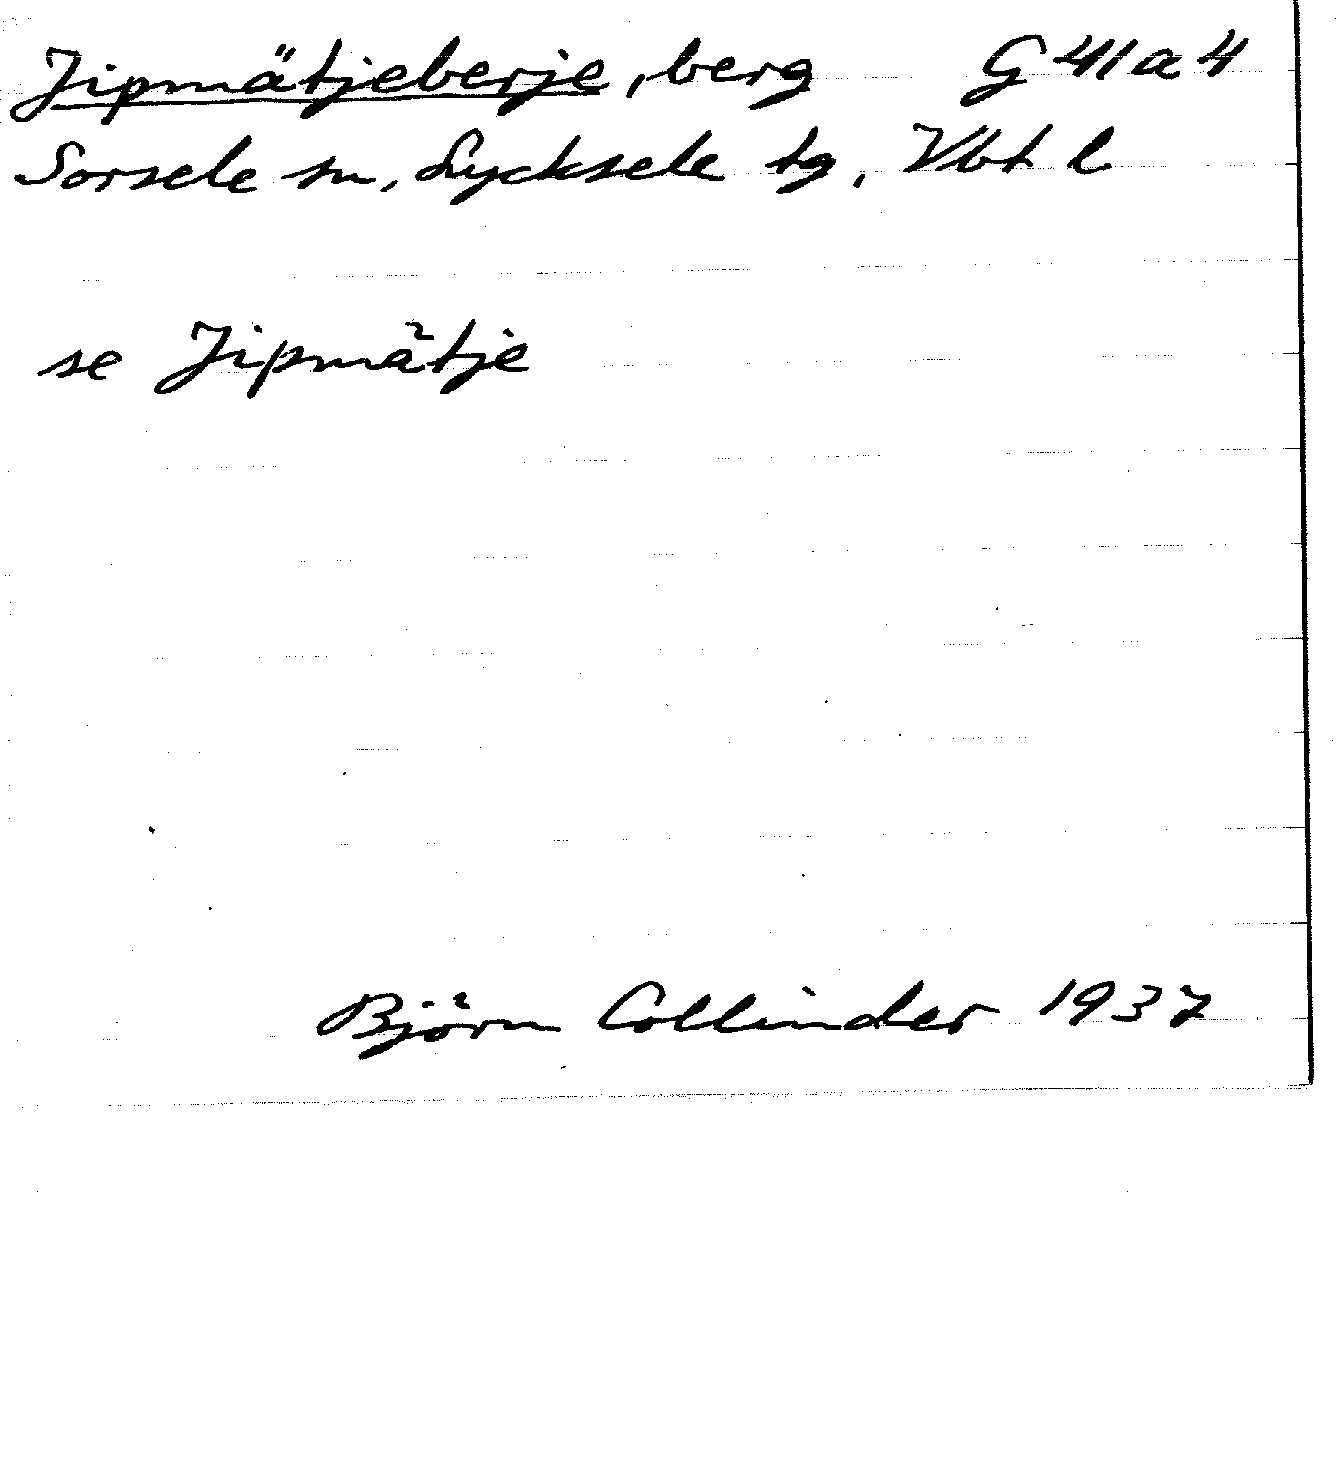 Jipmätjeberje, berg G 41 a 4
Sorsele sn, Lycksele tg, Vbt l
se Jipmätje
Björn Collinder 1937